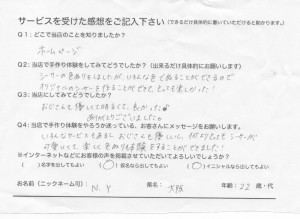 サービスを受けた感想をご記入下さい（できるだけ具体的に書いていただけると助かります。）
Q1：どこで当店のことを知りましたか？
ホームページ
Q2：当店で手作り体験をしてみてどうでしたか？（出来るだけ具体的にお願いします）
シーサーの色ぬりをしましたが、いろんな色でぬることができるので
オリジナルのシーサーを作ることができて、とっても楽しかった！
Q3：当店にしてみてどうでしたか？
おじさんも優しくて明るくて、良かった
ありがとうございました
Q4：当店で手作り体験をやろうか迷っている、お客さんにメッセージをお願いします。
いろんなサービスもあるし、おじさんも優しいし、
可愛いくて、楽しく色ぬり体験することができました！
※インターネットなどにお客様の声を掲載させていただいてよろしいでしょうか？
（　）名字を出してもよい　（　）仮名なら出してもよい　（○）イニシャルなら出してもよい
お名前（ニックネーム可）：N.Y　県名：大阪　年齢：22歳・代